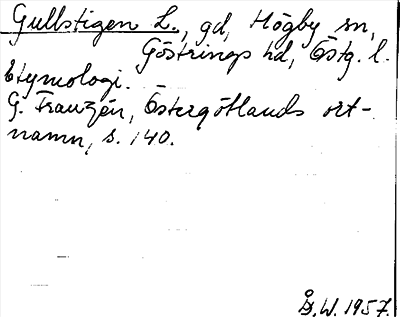 Gullstigen L., gd, Högby sn,
Göstrings hd, Östg. l.
Etymologi.
G. Franzén, Östergötlands ort-
namn, s. 140.
Å.W. 1957.